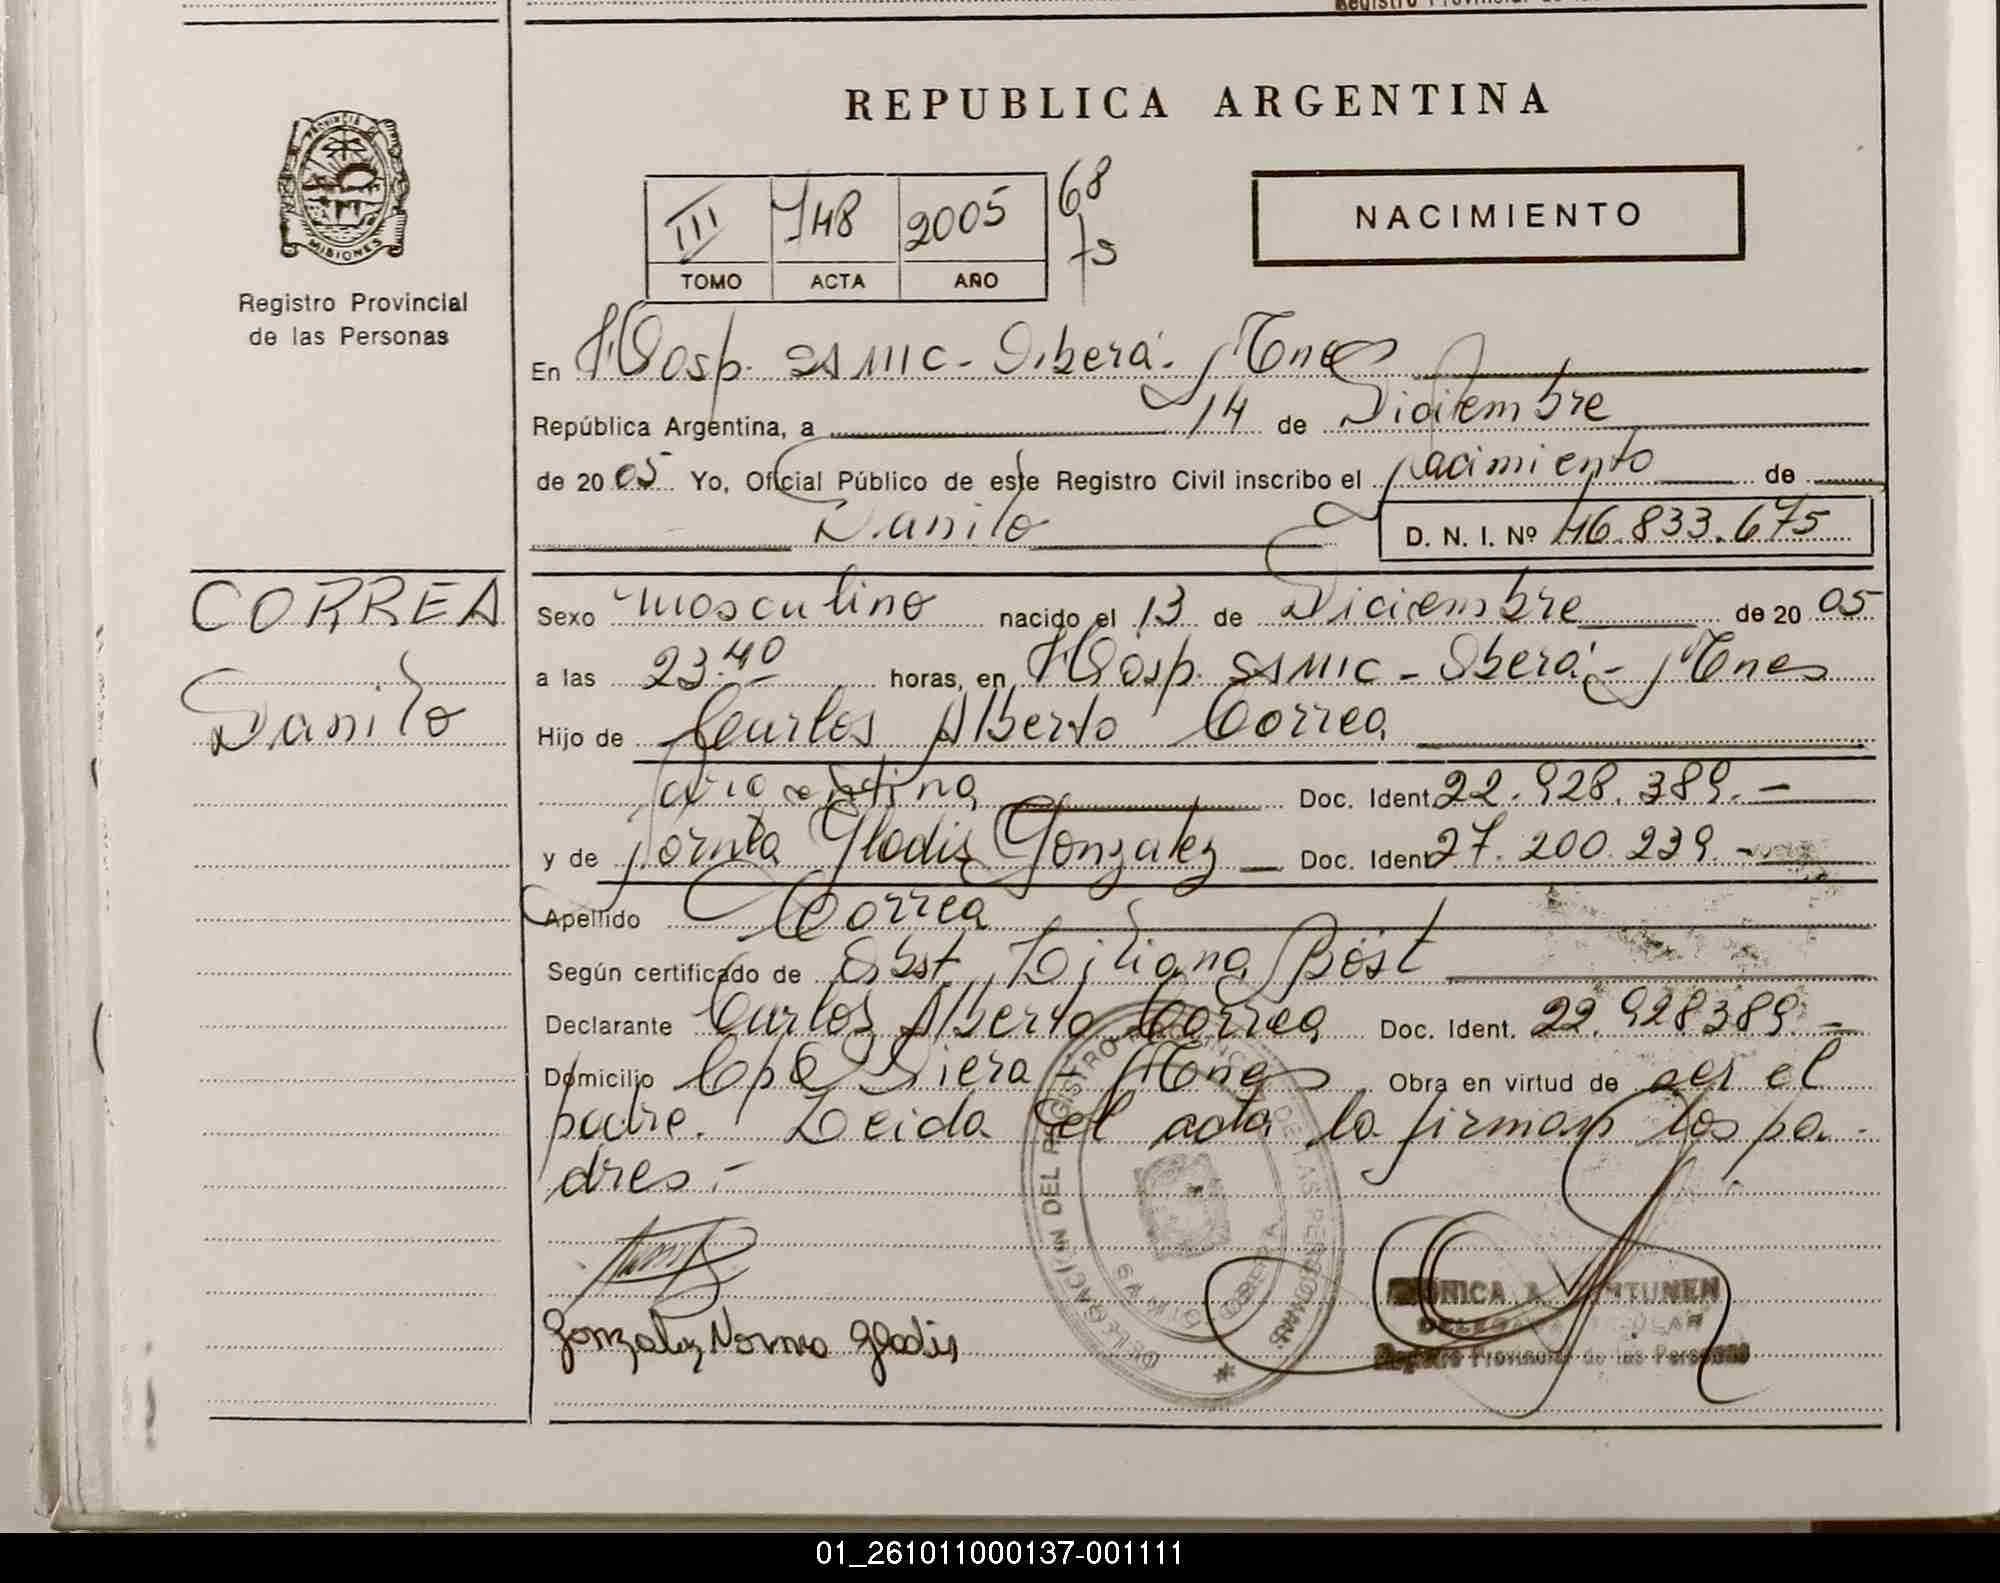 REPUBLICA ARGENTINA
PROVINCIA DE
MISIONES
Registro Provincial
de las Personas
III 748 2005 68
75
TOMO ACTA AÑO
NACIMIENTO
En Hosp. SAMIC - Oberá - Mnes
República Argentina, a 14 de Diciembre
de 2005 Yo, Oficial Público de este Registro Civil inscribo el nacimiento de
Danilo D. N. I. Nº 46.833.675
CORREA
Danilo
Sexo masculino nacido el 13 de Diciembre de 2005
a las 23.40 horas, en Hosp. SAMIC - Oberá - Mnes
Hijo de Carlos Alberto Correa
argentina Doc. Ident. 22.928.389.-
y de Norma Gladis Gonzalez Doc. Ident. 27.200.239.-
Apellido Correa
Según certificado de Obst. Liliana Böst
Declarante Carlos Alberto Correa Doc. Ident. 22.928389.-
Domicilio Cpo Viera - Mnes Obra en virtud de ser el
padre. Leida el acta la firman los pa-
dres.-
Gonzalez Norma Gladis
DELEGACIÓN DEL REGISTRO PROVINCIAL DE LAS PERSONAS
OBERA
MONICA A. ANTUNEN
DELEGADA TITULAR
Registro Provincial de las Personas
01_261011000137-001111